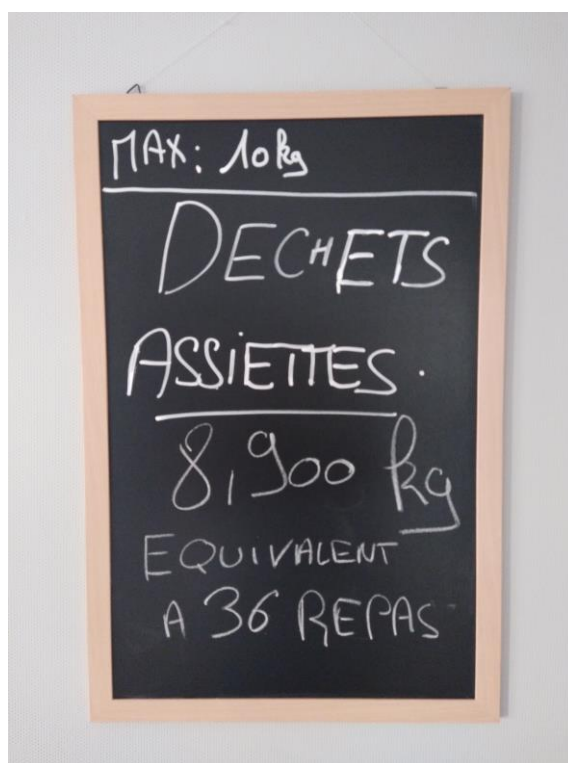 MAX: 10kg
DECHETS
ASSIETTES.
8,900 kg
EQUIVALENT
A 36 REPAS